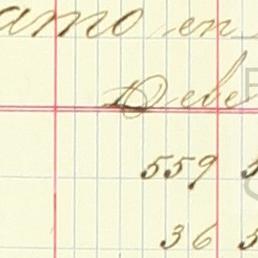 amo en
Debe
559 5
36 5